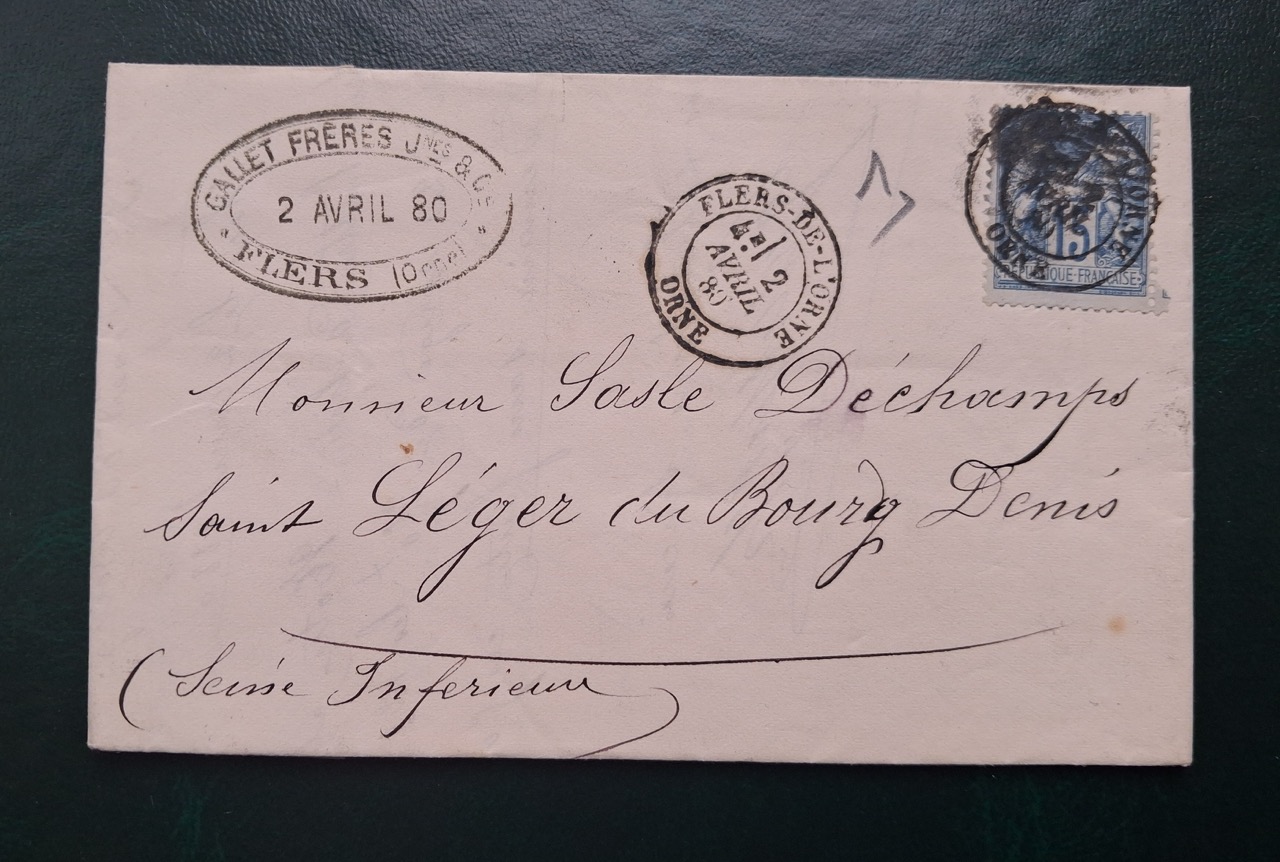 GALLET FRÈRES Jnes & Cie
2 AVRIL 80
FLERS (Orne)
FLERS-DE-L'ORNE
2
AVRIL
80
ORNE
L'ORNE
ORNE
15
REPUBLIQUE FRANÇAISE
Monsieur Sasle Déchamps
Saint Léger du Bourg Denis
(Seine Inferieur)